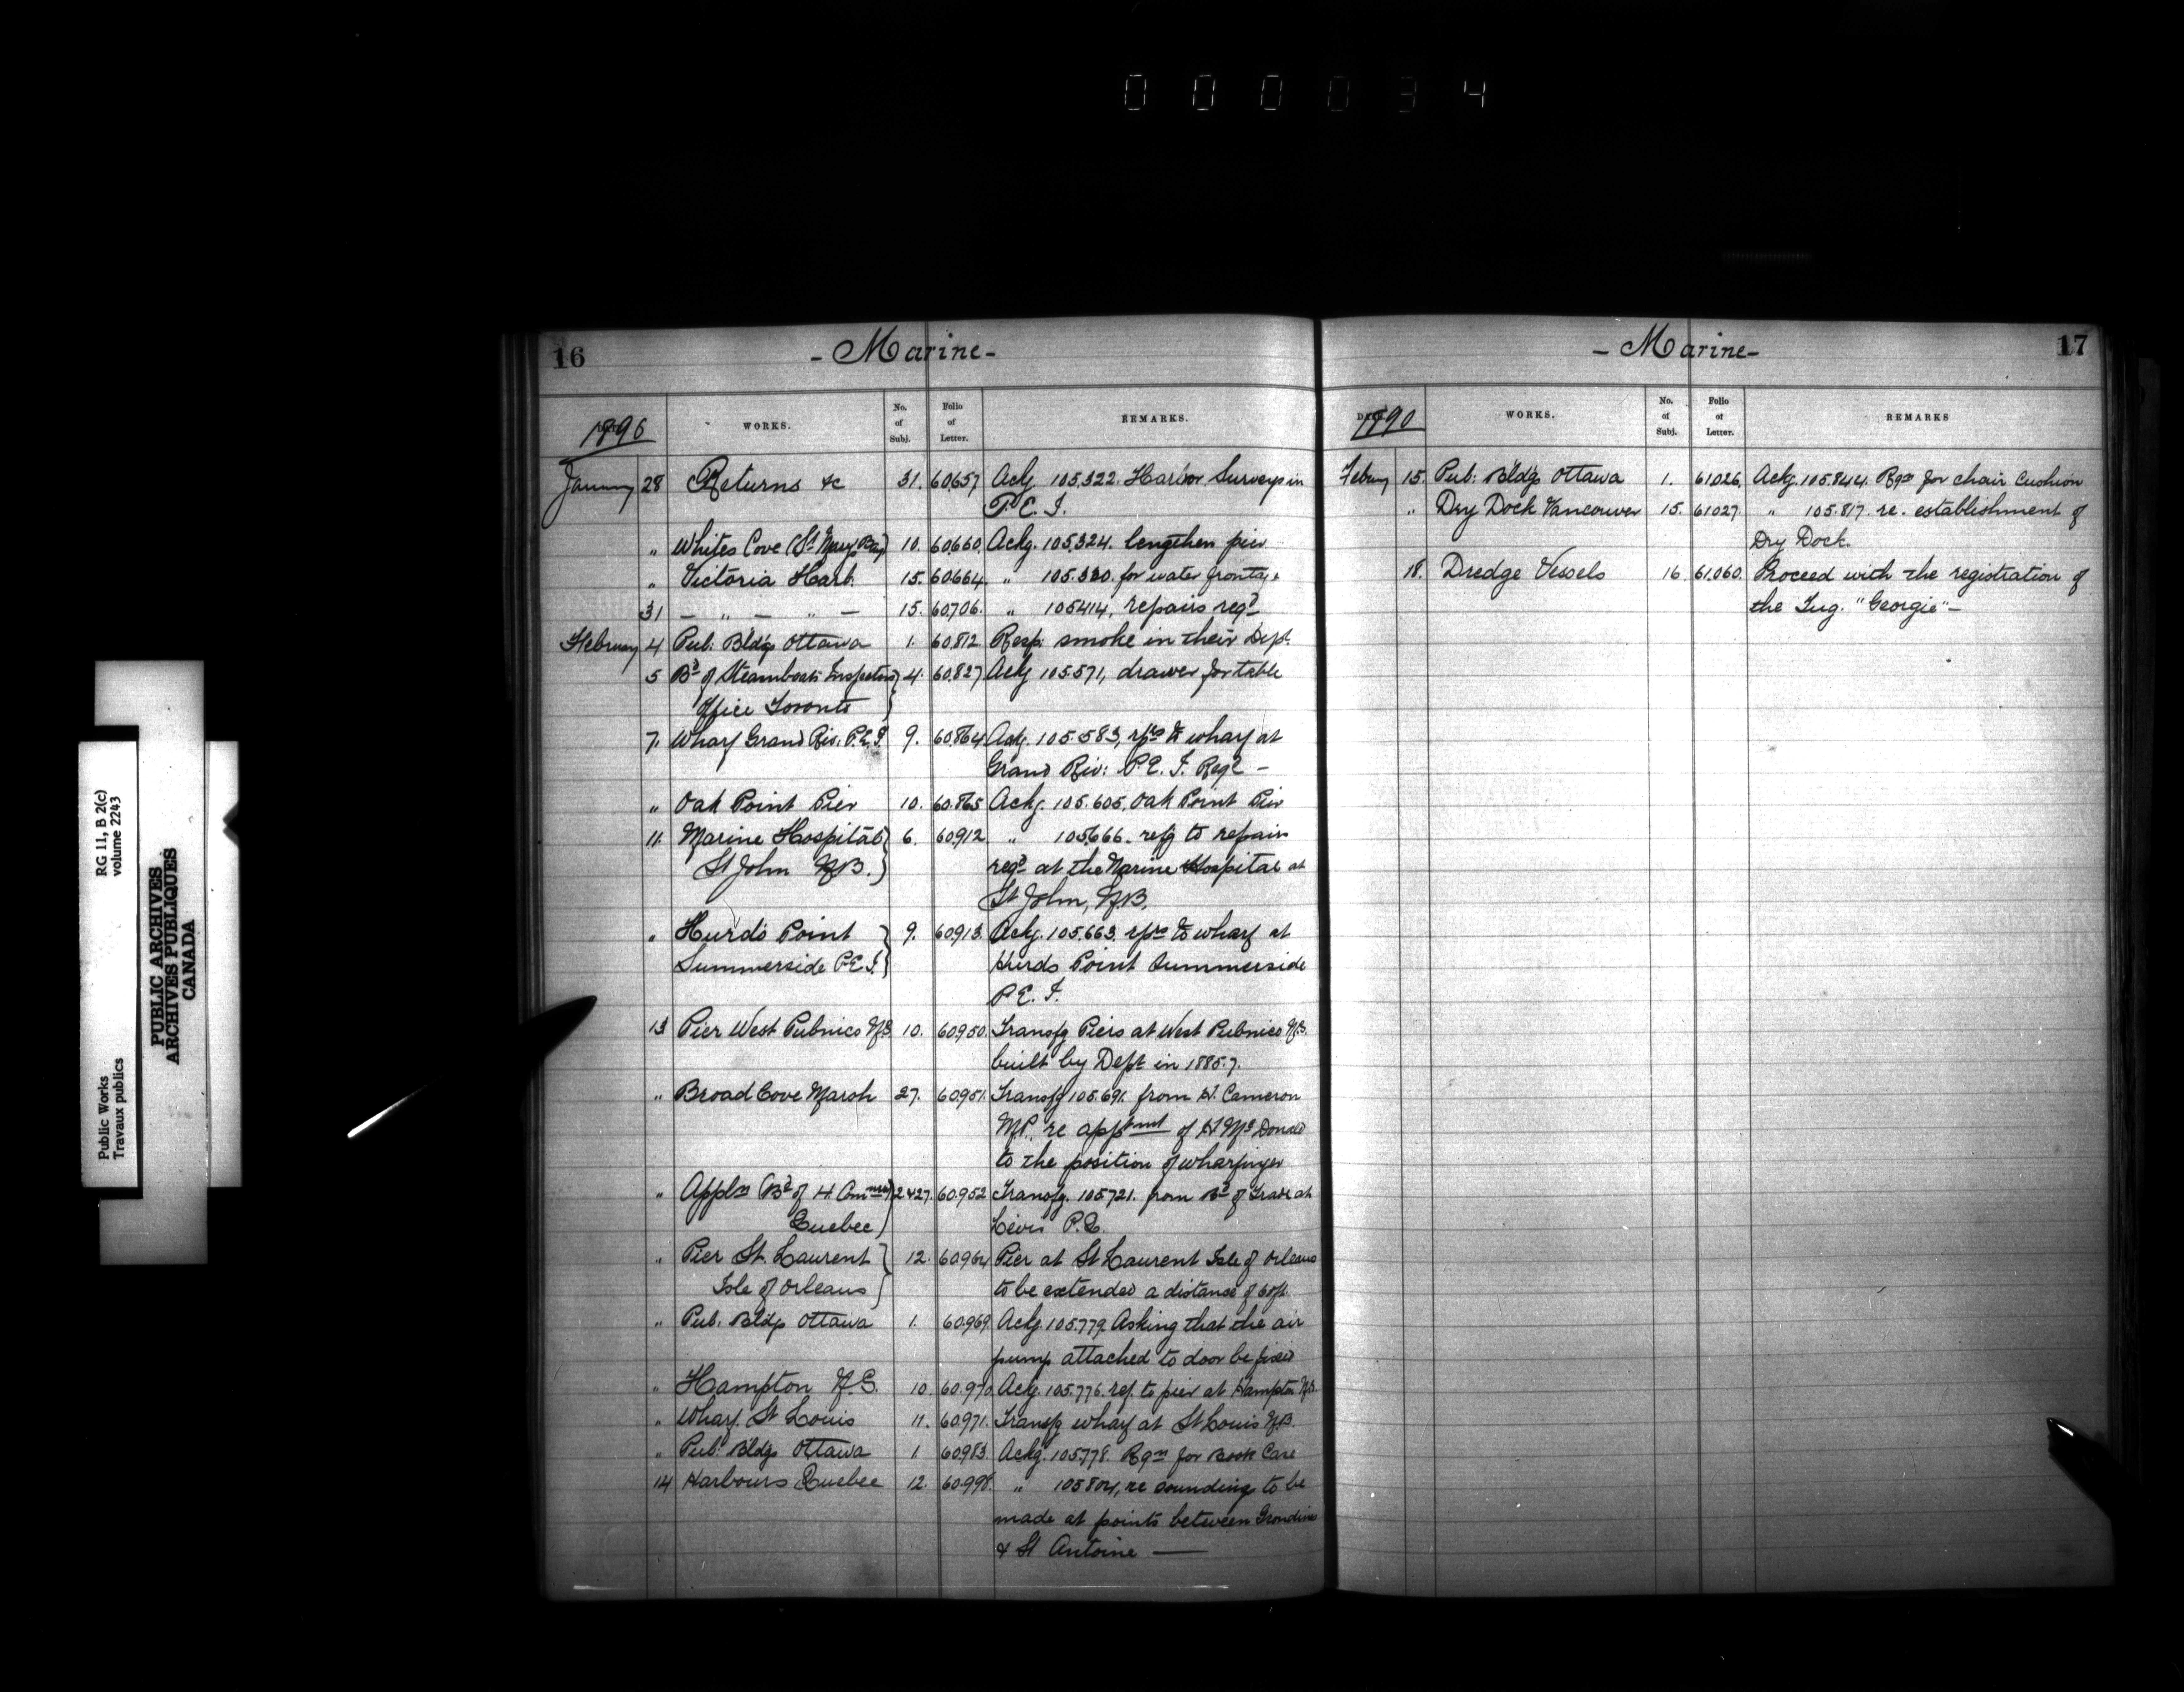 0 0 0 0 3 4
RG 11, B 2(c)
volume 2243
Public Works
Travaux publics
PUBLIC ARCHIVES
ARCHIVES PUBLIQUES
CANADA
16 - Marine -
1890 WORKS. No. of Subj. Folio of Letter. REMARKS.
January 28 Returns &c 31. 60,657 Ackg 105,322. Harbor Surveys in
P.E.I.
" Whites Cove (St Marys Bay) 10. 60,660. Ackg. 105,324. lengthen pier
" Victoria Harb. 15. 60,664. " 105.320. for water frontage
31 — " — " — 15. 60,706. " 105414, repairs reqd
February 4 Pub: Bldgs Ottawa 1. 60,812. Resp: smoke in their Dept.
5 Bd of Steamboat Inspectors 4. 60,827 Ackg 105.571, drawer for table
Office Toronto
7. Wharf Grand Riv. P.E.I. 9. 60,864 Ackg. 105.583, rprs to wharf at
Grand Riv: P.E.I. Reqd —
" Oak Point Pier 10. 60.865 Ackg. 105.605. Oak Point Pier
11. Marine Hospital 6. 60,912 " 105,666. refg to repairs
St John N.B. reqd at the Marine Hospital at
St John, N.B.
" Hurds Point 9. 60,913. Ackg. 105,663. rprs to wharf at
Summerside P.E.I. Hurds Point Summerside
P.E.I.
13 Pier West Pubnico N.S. 10. 60.950. Transfg Piers at West Pubnico N.S.
built by Dept in 1885.7.
" Broad Cove Marsh 27. 60,951. Transfg 105.691. from H. Cameron
M.P. re apptment of H McDonald
to the position of wharfinger
" Appln (Bd of H. Commrs) 2427. 60.952 Transfg. 105721. from Bd of Trade at
Quebec) Levis P.Q.
" Pier St. Laurent 12. 60964 Pier at St Laurent Isle of Orleans
Isle of Orleans to be extended a distance of 60ft.
" Pub. Bldgs Ottawa 1. 60,969. Ackg. 105.779. Asking that the air
pump attached to door be fixed
" Hampton N.S. 10. 60.970 Ackg. 105.776. ref. to pier at Hampton N.S.
" Wharf. St Louis 11. 60,971. Transfg wharf at St Louis N.B.
" Pub: Bldgs Ottawa 1. 60983. Ackg. 105,778. Rqn for Book Case
14 Harbours Quebec 12. 60.998. " 105804, re sounding to be
made at points between Grondines
& St Antoine —
- Marine - 17
1890 WORKS. No. of Subj. Folio of Letter. REMARKS
Februy 15. Pub: Bldgs Ottawa 1. 61,026. Ackg. 105.844. Rqn for chair Cushion
" Dry Dock Vancouver 15. 61027. " 105.817. re. establishment of
Dry Dock.
18. Dredge Vessels 16. 61,060. Proceed with the registration of
the Tug. "Georgie" —